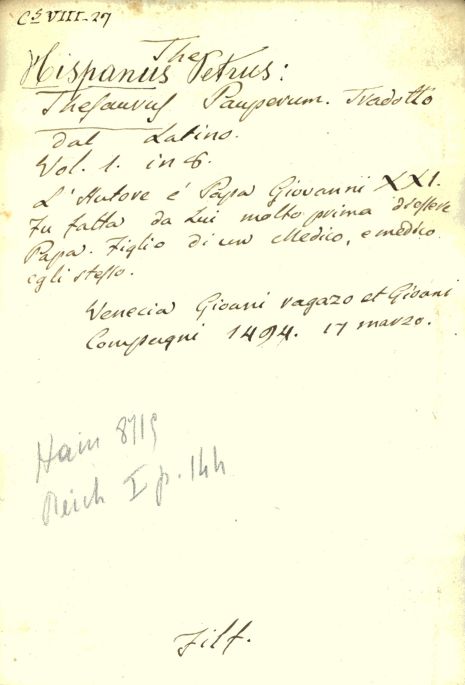 CS VIII-27
The
Hispanus Petrus:
Thesaurus Pauperum. Tradotto
dal Latino.
Vol. 1. in 8.
L'Autore é Papa Giovanni XXI.
Fu fatta da Lui molto prima di essere
Papa. Figlio di un Medico, e medico
egli stesso.
Venecia Gioani ragazo et Gioani
Compagni 1494. 17 marzo.
Hain 8715
Reich I p. 144
Filf.